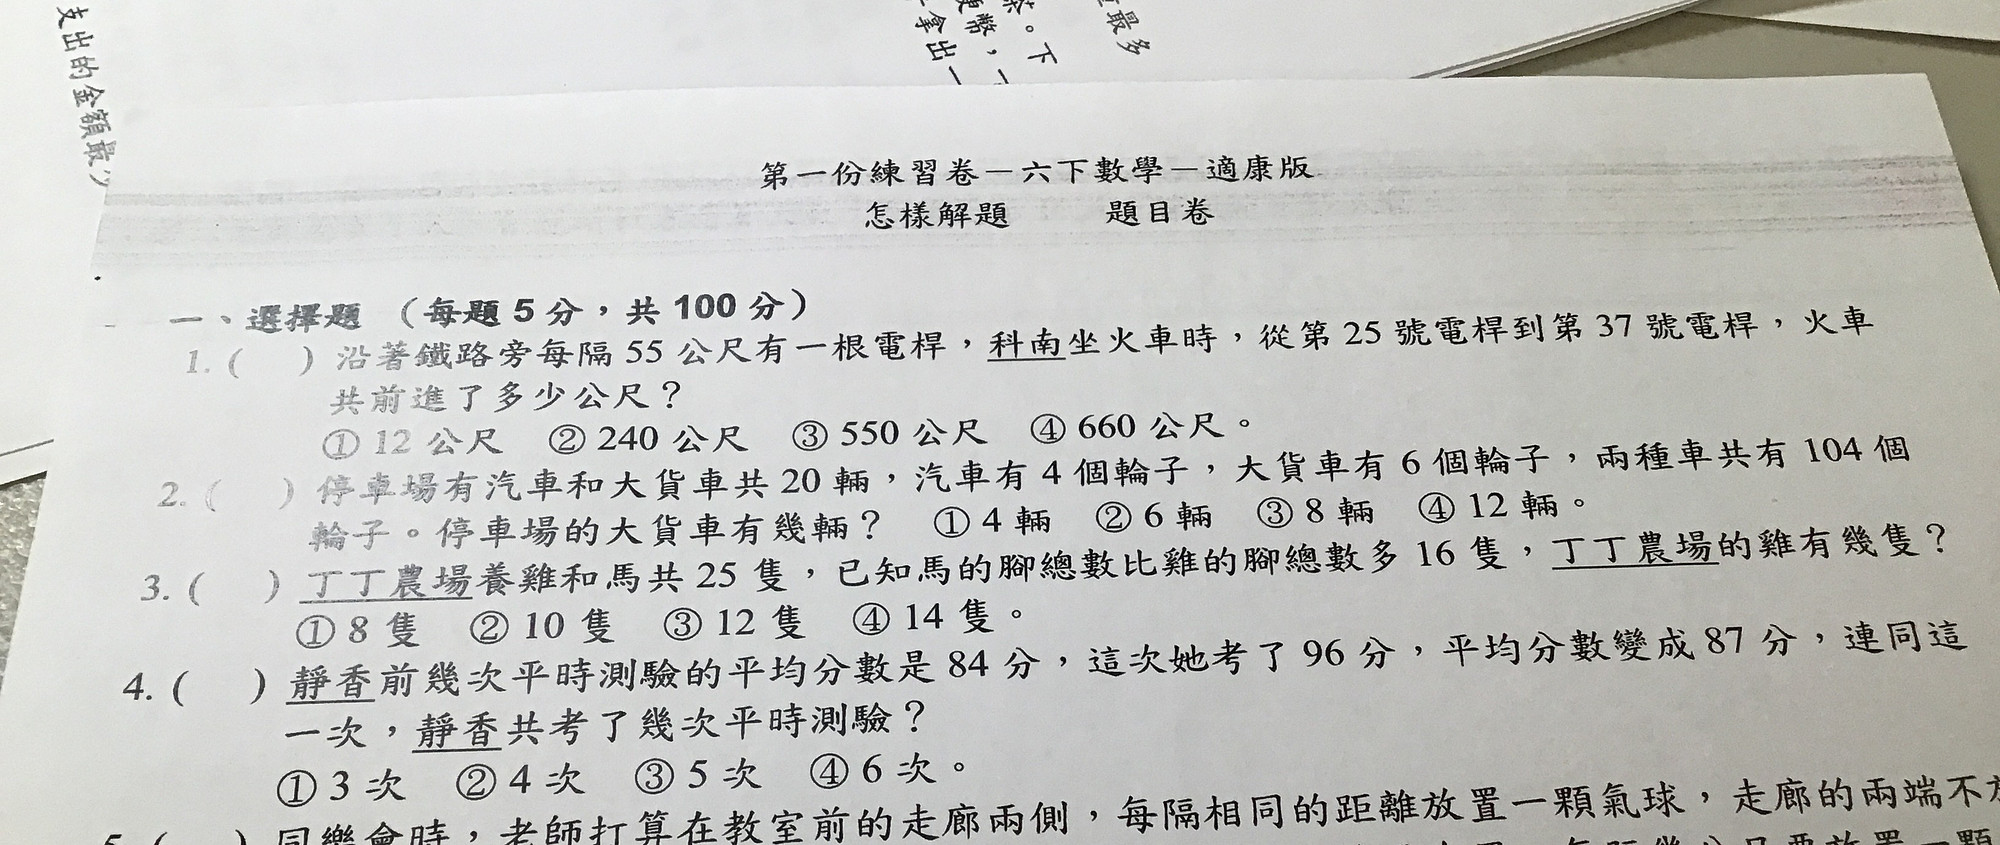 支出的金額最
最多
茶。下
硬幣，一
拿出一
第一份練習卷－六下數學－適康版
怎樣解題 題目卷
一、選擇題 （每題 5 分，共 100 分）
1. ( ) 沿著鐵路旁每隔 55 公尺有一根電桿，科南坐火車時，從第 25 號電桿到第 37 號電桿，火車
共前進了多少公尺？
① 12 公尺 ② 240 公尺 ③ 550 公尺 ④ 660 公尺。
2. ( ) 停車場有汽車和大貨車共 20 輛，汽車有 4 個輪子，大貨車有 6 個輪子，兩種車共有 104 個
輪子。停車場的大貨車有幾輛？ ① 4 輛 ② 6 輛 ③ 8 輛 ④ 12 輛。
3. ( ) 丁丁農場養雞和馬共 25 隻，已知馬的腳總數比雞的腳總數多 16 隻，丁丁農場的雞有幾隻？
① 8 隻 ② 10 隻 ③ 12 隻 ④ 14 隻。
4. ( ) 靜香前幾次平時測驗的平均分數是 84 分，這次她考了 96 分，平均分數變成 87 分，連同這
一次，靜香共考了幾次平時測驗？
① 3 次 ② 4 次 ③ 5 次 ④ 6 次。
5. ( ) 同樂會時，老師打算在教室前的走廊兩側，每隔相同的距離放置一顆氣球，走廊的兩端不放